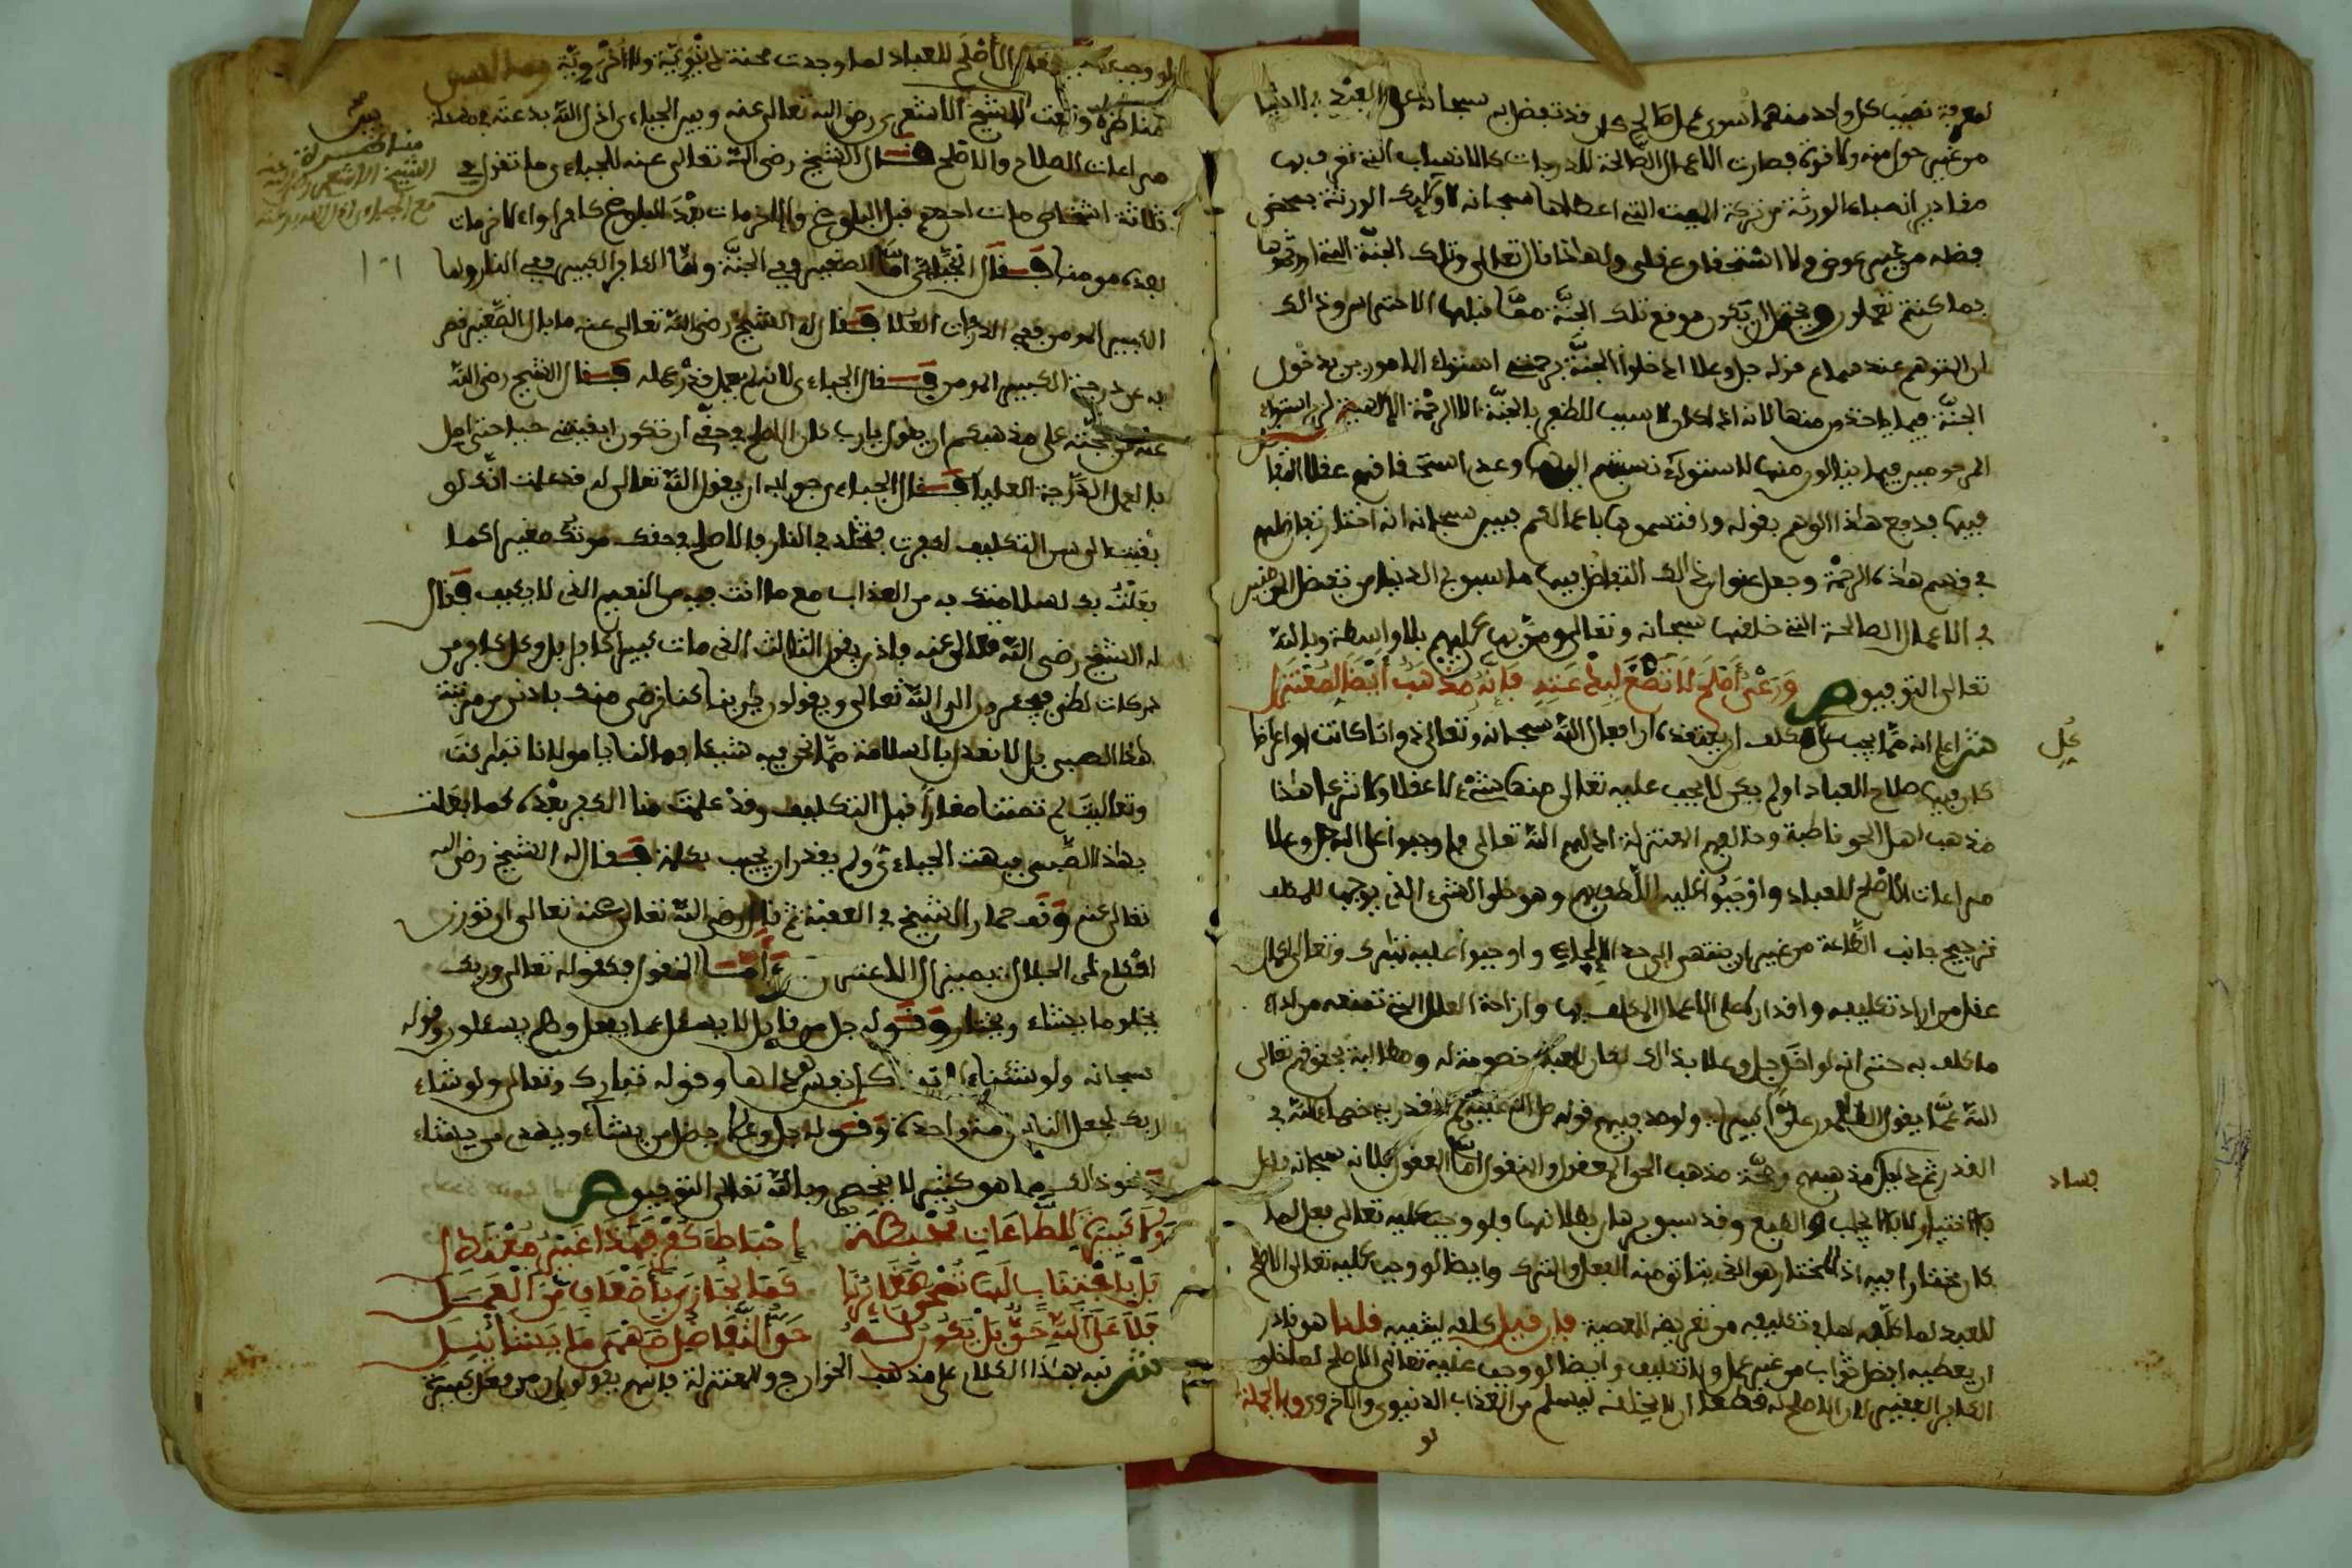 لمعرفة نصيب كل واحد منهما سوى عمل صالح كان قد تفضل به سبحانه على العبد في الدنيا
من غير حول منه ولا قوة فصارت الاعمال الصالحة للدرجات كالانصباء التي تعرف بها
مقادير انصباء الورثة من تركة الميت التي اعطاها سبحانه لاوليك الورثة بمحض
فضله من غير عوض ولا استحقاق عقلي ولهذا قال تعالى وتلك الجنة التي اورثتموها
بما كنتم تعملون ويحتمل ان يكون موقع تلك الجنة مما قبلها الاحتراس وذالك
ان المتوهم عند سماع قوله جل وعلا ادخلوا الجنة برحمتي استواء المامورين بدخول
الجنة فيما ياخذون منها لانه اذا كان لا سبب للظفر بالجنة الا الرحمة الالهية لزم استواء
المرحومين فيما ينالون منها لاستواء نسبتهم اليها وعدم استحقاقهم عقلا التفا
فيها فدفع هذا الوهم بقوله واقتسموها باعمالكم فبين سبحانه انه اختار تفاضلهم
في قسم هذه الرحمة وجعل عنوان ذالك التفاضل فيها ما سبق في الدنيا من تفضل المومنين
في الاعمال الصالحة التي خلقها سبحانه وتعالى ومن بها عليهم بلا واسطة وبالله
تعالى التوفيق ص ورعي أصلح لا تصغ ليلى عنده فإنه مذهب أيضا لمعتزل
ش اعلم انه مما يجب على كل مكلف ان يعتقده ان افعال الله سبحانه وتعالى ذواتا كانت او اعراضا
كان فيها صلاح العباد او لم يكن لا يجب عليه تعالى منها شيء لا عقلا ولا شرعا هذا
مذهب اهل الحق قاطبة وخالفهم المعتزلة اذلهم الله تعالى فاوجبوا على الله جل وعلا
مراعات الاصلح للعباد واوجبوا عليه اللطف بهم وهو خلق الشيء الذي يوجب للمكلف
ترجيح جانب الطاعة من غير ان ينتهي الى حد الالجاء واوجبوا عليه تبارك وتعالى اكمال
عقل من اراد تكليفه واقداره على الاعمال المكلف بها وازاحة العلل التي تمنعه من اداء
ما كلف به حتى انه لو اخل جل وعلا بذالك لكان للعبد خصومة له ومطالبة بحقوقه تعالى
الله عما يقول الظالمون علوا كبيرا ولوجد فيهم قوله صلى الله عليه وسلم القدرية خصماء الله في
القدر ثم دليل مذهبهم وصحة مذهب الحق المعقول والمنقول اما المعقول فلانه سبحانه فاعل
بالاختيار لا بالايجاب والطبع وقد سبق برهان بطلانهما فلو وجب عليه تعالى فعل لما
كان مختارا فيه اذ المختار هو الذي يتاتى منه الفعل والترك وايضا لو وجب عليه تعالى الاصلح
للعبد لما كلفه لما في تكليفه من تعريضه للمعصية فان قيل كلفه ليثيبه قلنا هو قادر
ان يعطيه افضل ثواب من غير عمل ولا تكليف وايضا لو وجب عليه تعالى الاصلح لما خلق
الكافر الفقير لان الاصلح له قطعا ان لا يخلقه ليسلم من العذاب الدنيوي والاخروي وبالجملة
لو
كل
فساد
لو وجب عليه فعل الأصلح للعباد لما وجدت محنة دنيوية ولا أخروية
مناظرة وقعت للشيخ الاشعري رضي الله تعالى عنه وبين الجباءي اذل الله بدعته في مسئلة
مراعات الصلاح والاصلح فقال الشيخ رضي الله تعالى عنه للجباءي ما تقول في
ثلاثة اشخاص مات احدهم قبل البلوغ والاخر مات بعد البلوغ كافرا والاخر مات
بعده مومنا فقال الجباءي اما الصغير ففي الجنة واما الكافر الكبير ففي النار واما
الكبير المومن ففي الدرجات العلا فقال له الشيخ رضي الله تعالى عنه ما بال الصغير قصر
به عن درجة الكبير المومن فقال الجباءي لانه لم يعمل قدر عمله فقال الشيخ رضي الله
عنه من حجته على مذهبكم ان يقول يارب كان الاصلح في حقي ان تكون ابقيتني حيا حتى اصل
بالعمل الدرجة العليا فقال الجباءي جوابه ان يقول الله تعالى له قد علمت انك لو
بقيت الى سن التكليف لكفرت فتخلد في النار فالاصلح في حقك موتك صغيرا كما
فعلت بك لسلامتك به من العذاب مع ما انت فيه من النعيم الذي لا يكيف فقال
له الشيخ رضي الله تعالى عنه فاذن يقول الثالث الذي مات كبيرا كافرا بل وكل كافر من
دركات لظى فيجعرون الى الله تعالى ويقولون يا ربنا كنا نرضى منك بادنى من مرتبة
هذا الصبي بل لا نعدل بالسلامة مما نحن فيه شيئا فما لنا يا مولانا تباركت
وتعاليت لم تمتنا صغارا قبل التكليف وقد علمت منا الكفر بعده كما فعلت
بهذا الصبي فبهت الجباءي ولم يقدر ان يجيب بكلمة فقال له الشيخ رضي الله
تعالى عنه وقف حمار الشيخ في العقبة ثم قال رضي الله تعالى عنه تعالى ان توزن
احكام ذي الجلال بميزان الاعتزال واما المنقول فكقوله تعالى وربك
يخلق ما يشاء ويختار وقوله جل من قايل لا يسئل عما يفعل وهم يسئلون وقوله
سبحانه ولو شئنا لاتينا كل نفس هداها وقوله تبارك وتعالى ولو شاء
ربك لجعل الناس امة واحدة وقوله جل وعلا يضل من يشاء ويهدي من يشاء
ونحو ذالك مما هو كثير لا ينحصر وبالله تعالى التوفيق ص
ولا كبيرة للطاعات محبطة إحباط كفر فهذا غير معتدل
بل باجتناب لها تمحى صغائرنا كما نجازى بأضعاف من العمل
فلا على الله حق بل يكون له حق التفاضل منهم ما يشا ينل
ش نبه بهذا الكلام على مذهب الخوارج والمعتزلة فانهم يقولون ان من فعل كبيرة
مناظرة
الشيخ الاشعري
مع الجباءي
١٠١